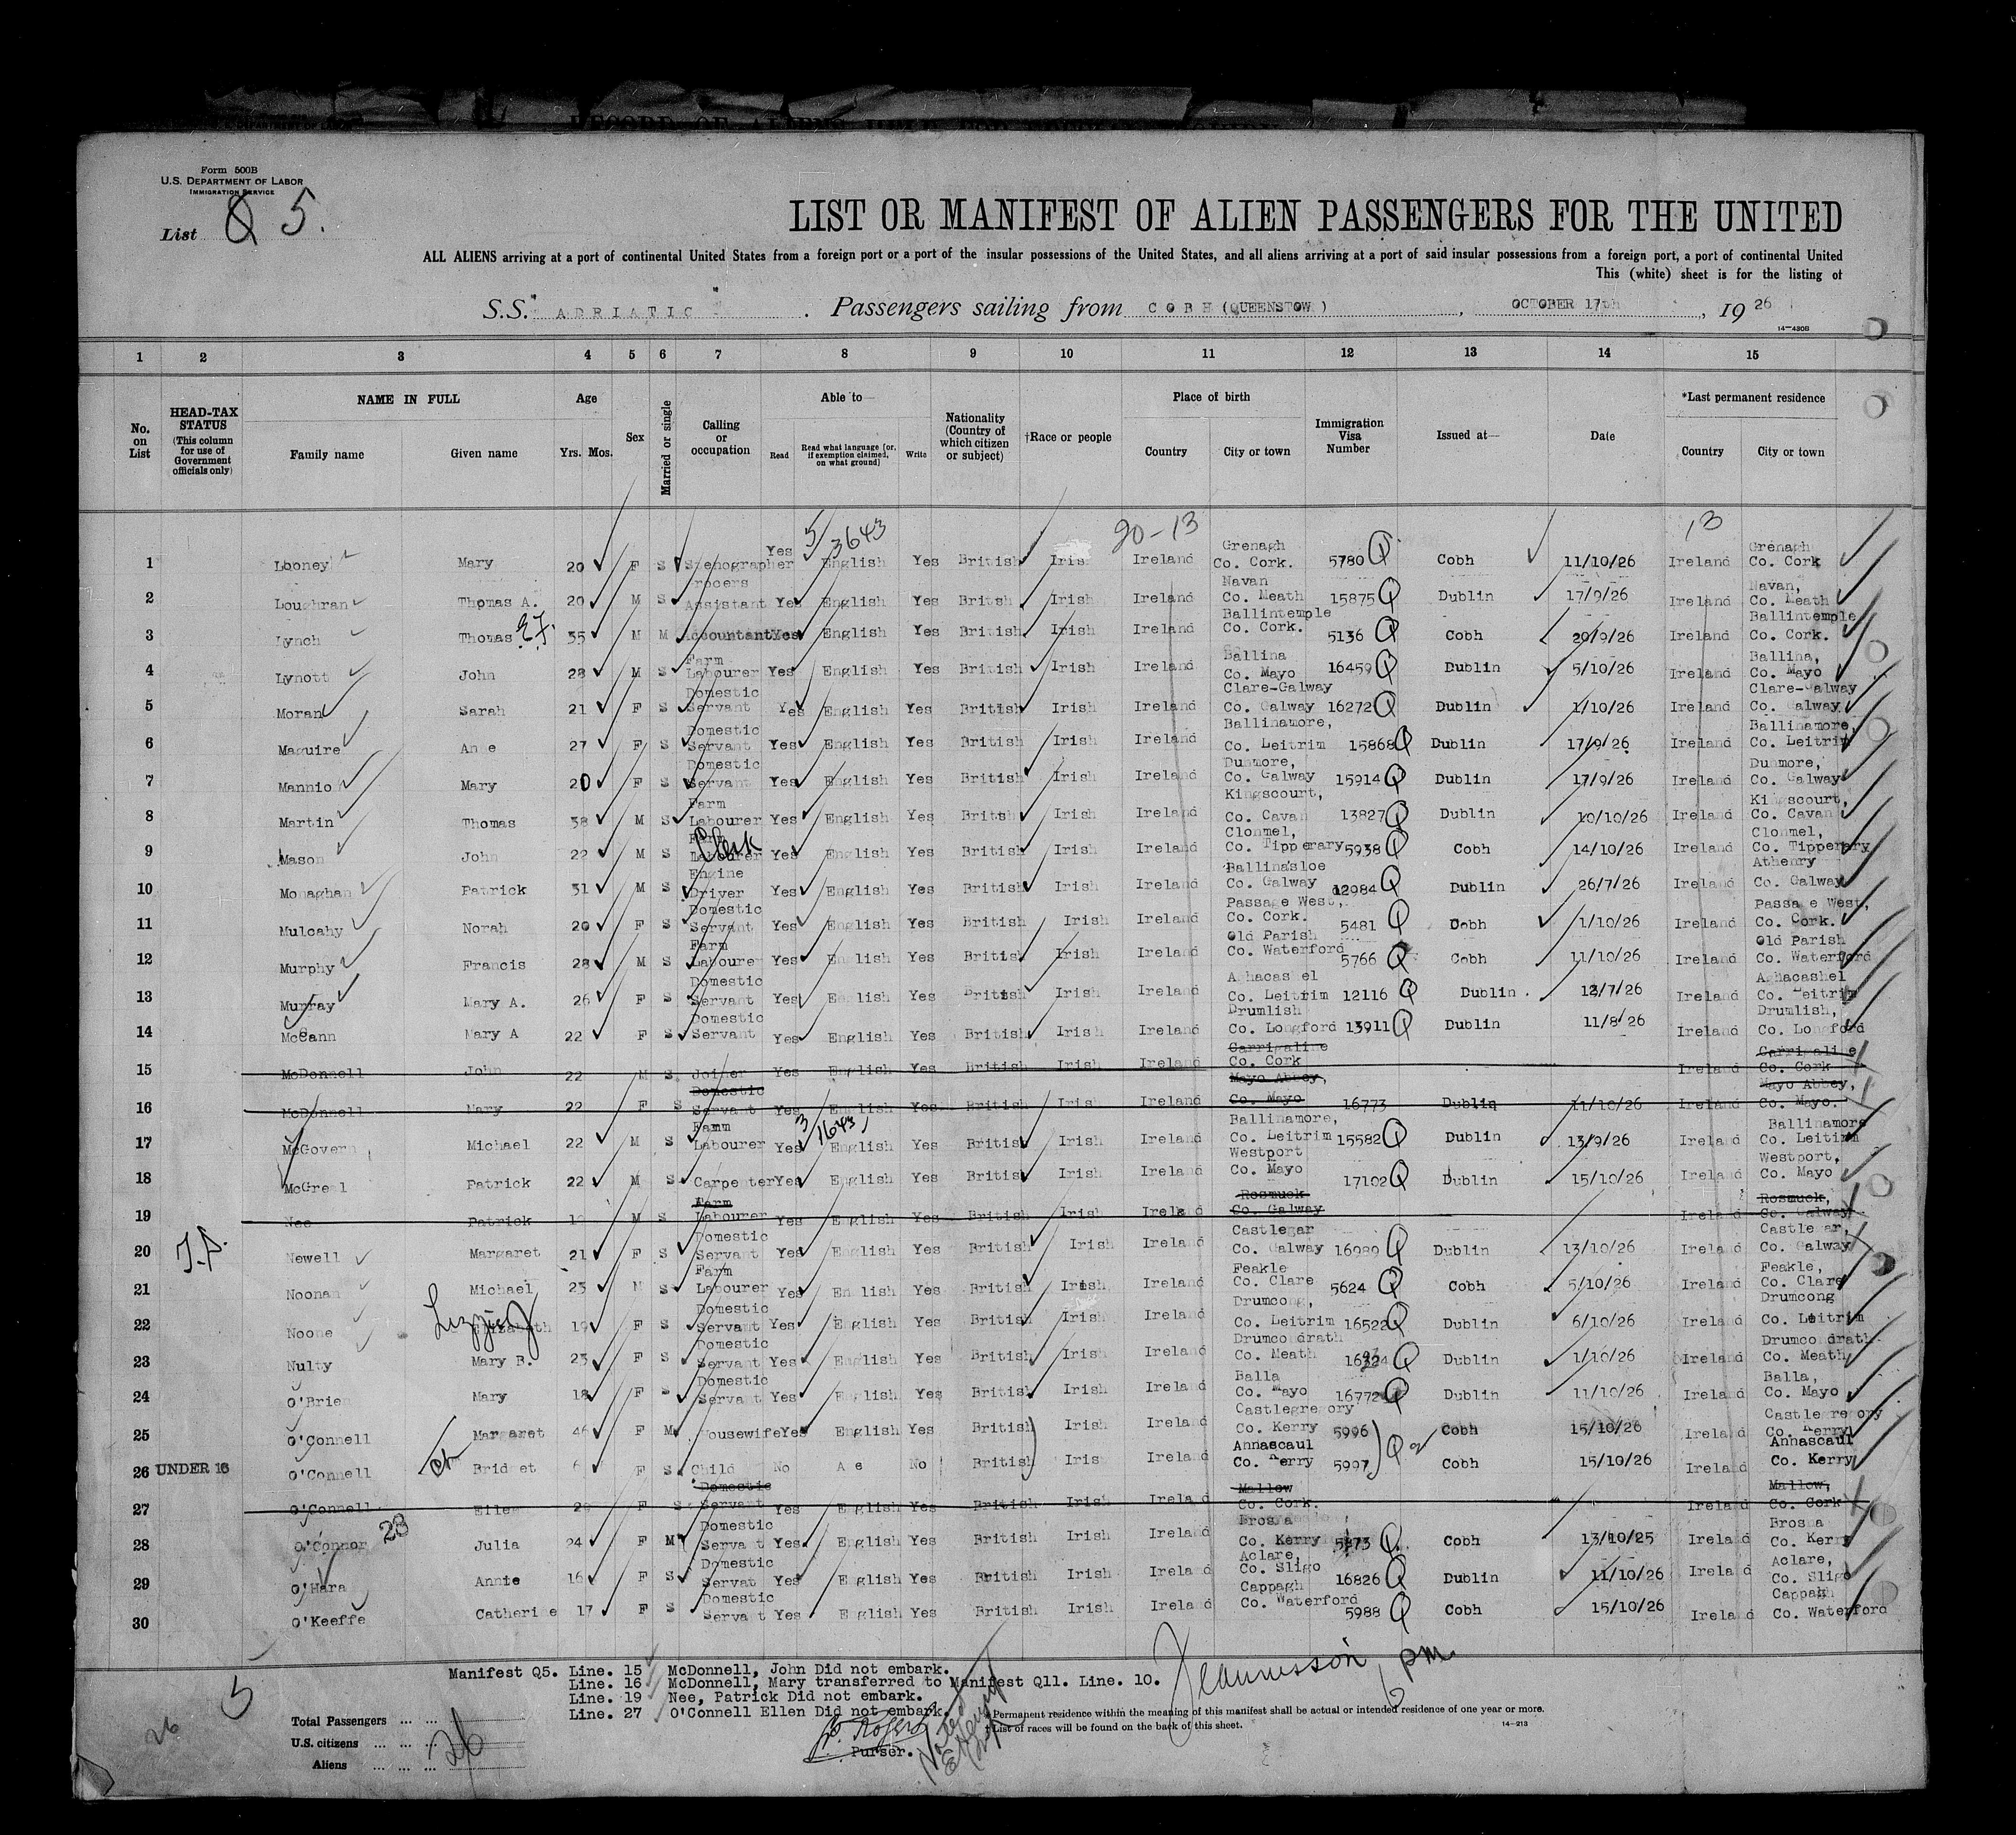 Form 500B
U.S. DEPARTMENT OF LABOR
IMMIGRATION SERVICE
List Q 5.
LIST OR MANIFEST OF ALIEN PASSENGERS FOR THE UNITED
ALL ALIENS arriving at a port of continental United States from a foreign port or a port of the insular possessions of the United States, and all aliens arriving at a port of said insular possessions from a foreign port, a port of continental United
This (white) sheet is for the listing of
S.S. "ADRIATIC" Passengers sailing from COBH (QUEENSTOW ), OCTOBER 17th, 1926
14-430B
1 2 3 4 5 6 7 8 9 10 11 12 13 14 15
No. on List
HEAD-TAX STATUS (This column for use of Government officials only)
NAME IN FULL Family name Given name
Age Yrs. Mos.
Sex
Married or single
Calling or occupation
Able to— Read Read what language [or, if exemption claimed, on what ground] Write
Nationality (Country of which citizen or subject)
†Race or people
Place of birth Country City or town
Immigration Visa Number
Issued at—
Date
*Last permanent residence Country City or town
5/3643 20-13 13
1 Looney Mary 20 F S Stenographer Yes English Yes British Iris Ireland Grenagh Co. Cork. 5780 Q Cobh 11/10/26 Ireland Grenagh Co. Cork
2 Loughran Thomas A. 20 M S rocers Assistant Yes English Yes Britsh Irish Ireland Navan Co. Meath 15875 Q Dublin 17/9/26 Ireland Navan, Co. Meath
3 Lynch Thomas E.F. 35 M M Accountant Yes English Yes British Irish Ireland Ballintemple Co. Cork. 5136 Q Cobh 20/9/26 Ireland Ballintemple Co. Cork.
4 Lynott John 28 M S Farm Labourer Yes English Yes British Irish Ireland Ballina Co. Mayo 16459 Q Dublin 5/10/26 Ireland Ballina, Co. Mayo
5 Moran Sarah 21 F S Domestic Servant Yes English Yes British Irish Ireland Clare-Galway Co. Galway 16272 Q Dublin 1/10/26 Ireland Clare-Galway Co. Galway
6 Maguire An e 27 F S Domestic Servant Yes English Yes British Irish Ireland Ballinamore, Co. Leitrim 15868 Q Dublin 17/9/26 Ireland Ballinamore, Co. Leitrim
7 Mannio Mary 20 F S Domestic Servant Yes English Yes British Irish Ireland Dunmore, Co. Galway 15914 Q Dublin 17/9/26 Ireland Dunmore, Co. Galway
8 Martin Thomas 38 M S Farm Labourer Yes English Yes Britsh Irish Ireland Kingscourt, Co. Cavan 13827 Q Dublin 10/10/26 Ireland Ki gscourt, Co. Cavan
9 Mason John 22 M S Farm Labourer Clerk Yes English Yes British Irish Ireland Clonmel, Co. Tipperary 5938 Q Cobh 14/10/26 Ireland Clonmel, Co. Tipperary
10 Monaghan Patrick 31 M S Engine Driver Yes English Yes British Irish Ireland Ballinasloe Co. Galway 12984 Q Dublin 26/7/26 Ireland Athenry Co. Galway
11 Mulcahy Norah 20 F S Domestic Servant Yes English Yes British Irish Ireland Passage West, Co. Cork. 5481 Q Cobh 1/10/26 Ireland Passa e West, Co. Cork.
12 Murphy Francis 28 M S Farm Labourer Yes E lish Yes British Irish Ireland Old Parish Co. Waterford 5766 Q Cobh 11/10/26 Ireland Old Parish Co. Waterford
13 Murray Mary A. 26 F S Domestic Servant Yes E lish Yes British Irish Ireland Aghacas el Co. Leitrim 12116 Q Dublin. 12/7/26 Ireland Aghacashel Co. Leitrim
14 McCann Mary A 22 F S Domestic Servant Yes English Yes British Irish Ireland Drumlish Co. Longford 13911 Q Dublin 11/8/26 Ireland Drumlish, Co. Longford
15 McDonnell John 22 M S Joiner Yes English Yes British Irish Ireland Carrigaline Co. Cork Ireland Carrigaline Co. Cork
16 McDonnell Mary 22 F S Domestic Servant Yes English Yes British Irish Ireland Mayo Abbey, Co. Mayo 16773 Dublin 11/10/26 Ireland Mayo Abbey, Co. Mayo.
3/1643
17 McGovern Michael 22 M S Farm Labourer Yes English Yes British Irish Ireland Ballinamore, Co. Leitrim 15582 Q Dublin 13/9/26 Ireland Ballinamore Co. Leitrim
18 McGreal Patrick 22 M S Carpenter Yes English Yes British Irish Ireland Westport Co. Mayo 17102 Q Dublin 15/10/26 Ireland Westport, Co. Mayo
19 Nee Patrick 19 M S Farm Labourer Yes English Yes British Irish Irela Rosmuck Co. Galway Ireland Rosmuck, Co. Galway
20 Newell Margaret 21 F S Domestic Servant Yes English Yes British Irish Ireland Castlegar Co. Galway 16989 Q Dublin 13/10/26 Ireland Castle ar, Co. Galway
21 Noonan Michael 23 M S Farm Labourer Yes En lish Yes British Irish Ireland Feakle Co. Clare 5624 Q Cobh 5/10/26 Ireland Feakle, Co. Clare
22 Noone Lizzie Elizabeth 19 F S Domestic Servant Yes English Yes British Irish Ireland Drumcong, Co. Leitrim 16522 Q Dublin 6/10/26 Ireland Drumcong Co. Leitrim
23 Nulty Mary B. 23 F S Domestic Servant Yes English Yes British Irish Ireland Drumco drath Co. Meath Q Dublin 1/10/26 Ireland Drumco drath. Co. Meath
24 O'Brien Mary 18 F S Domestic Servant Yes English Yes British Irish Ireland Balla Co. Mayo 16772 Q Dublin 11/10/26 Ireland Balla, Co. Mayo
25 O'Connell Margaret 46 F M Housewife Yes English Yes British Irish Ireland Castlegregory Co. Kerry 5996 Q Cobh 15/10/26 Ireland Castlegregory Co. Kerry
26 UNDER 16 O'Connell Brid et 6 F S Child No A e No British Iris Ireland Annascaul Co. Kerry 5997 Cobh 15/10/26 Ireland Annascaul Co. Kerry
27 O'Connell Eile F S Domestic Servant Yes English Yes British Irish Ireland Mallow Co. Cork. Ireland Mallow, Co. Cork
28 O'Connor 28 Julia 24 F M Domestic Serva t Yes English Yes British Irish Ireland Brosna Co. Kerry 5873 Q Cobh 13/10/25 Ireland Brosna Co. Kerry
29 O'Hara Annie 16 F S Domestic Servat Yes English Yes British Irish Ireland Aclare, Co. Sligo 16826 Q Dublin 11/10/26 Ireland Aclare, Co. Sligo
30 O'Keeffe Catheri e 17 F S Domestic Serva t Yes E glish Yes British Irish Ireland Cappagh Co. Waterford 5988 Q Cobh 15/10/26 Ireland Cappagh Co. Waterford
Manifest Q5. Line. 15 McDonnell, John Did not embark.
Line. 16 McDonnell, Mary transferred to Manifest Q11. Line. 10.
Line. 19 Nee, Patrick Did not embark.
Line. 27 O'Connell Ellen Did not embark.
Purser.
Total Passengers ... ...
U.S. citizens ... ... ...
Aliens ... ... ... 26
5
26
* Permanent residence within the meaning of this manifest shall be actual or intended residence of one year or more.
† List of races will be found on the back of this sheet.
14-213